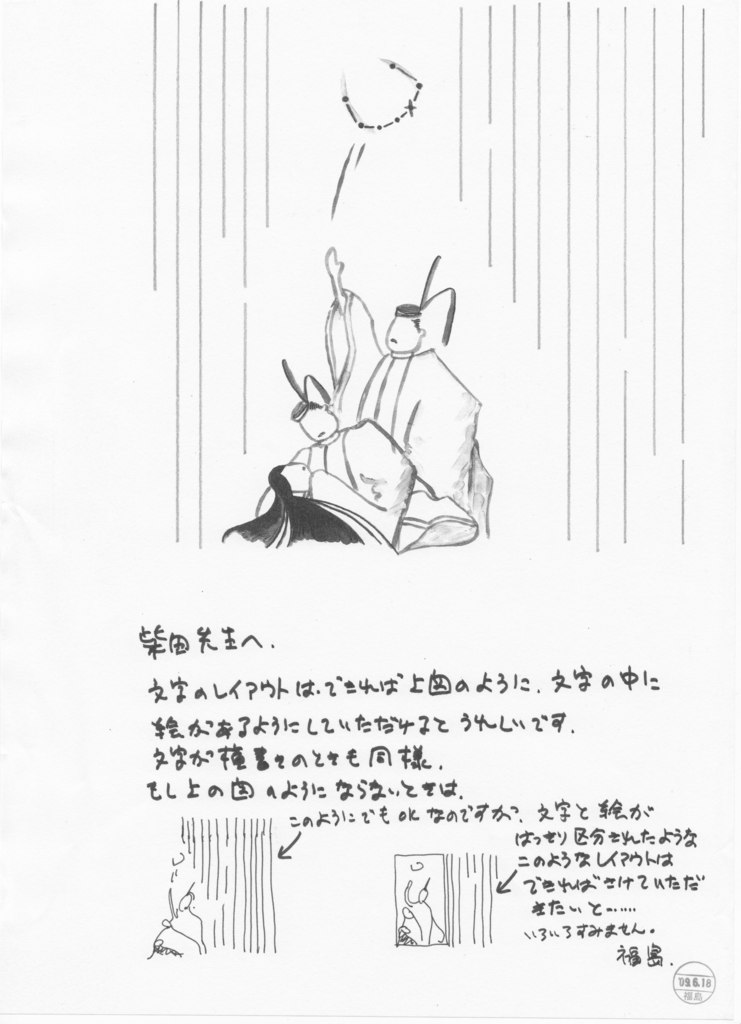 柴田先生へ.
文字のレイアウトは、できれば上図のように、文字の中に
絵があるようにしていただけるとうれしいです.
文字が横書きのときも同様.
もし上の図のようにならないときは、
このようにでもOKなのですが、文字と絵が
はっきり区分されたような
このようなレイアウトは
できればさけていただ
きたいと……
いろいろすみません。
福島.
'09.6.18
福島